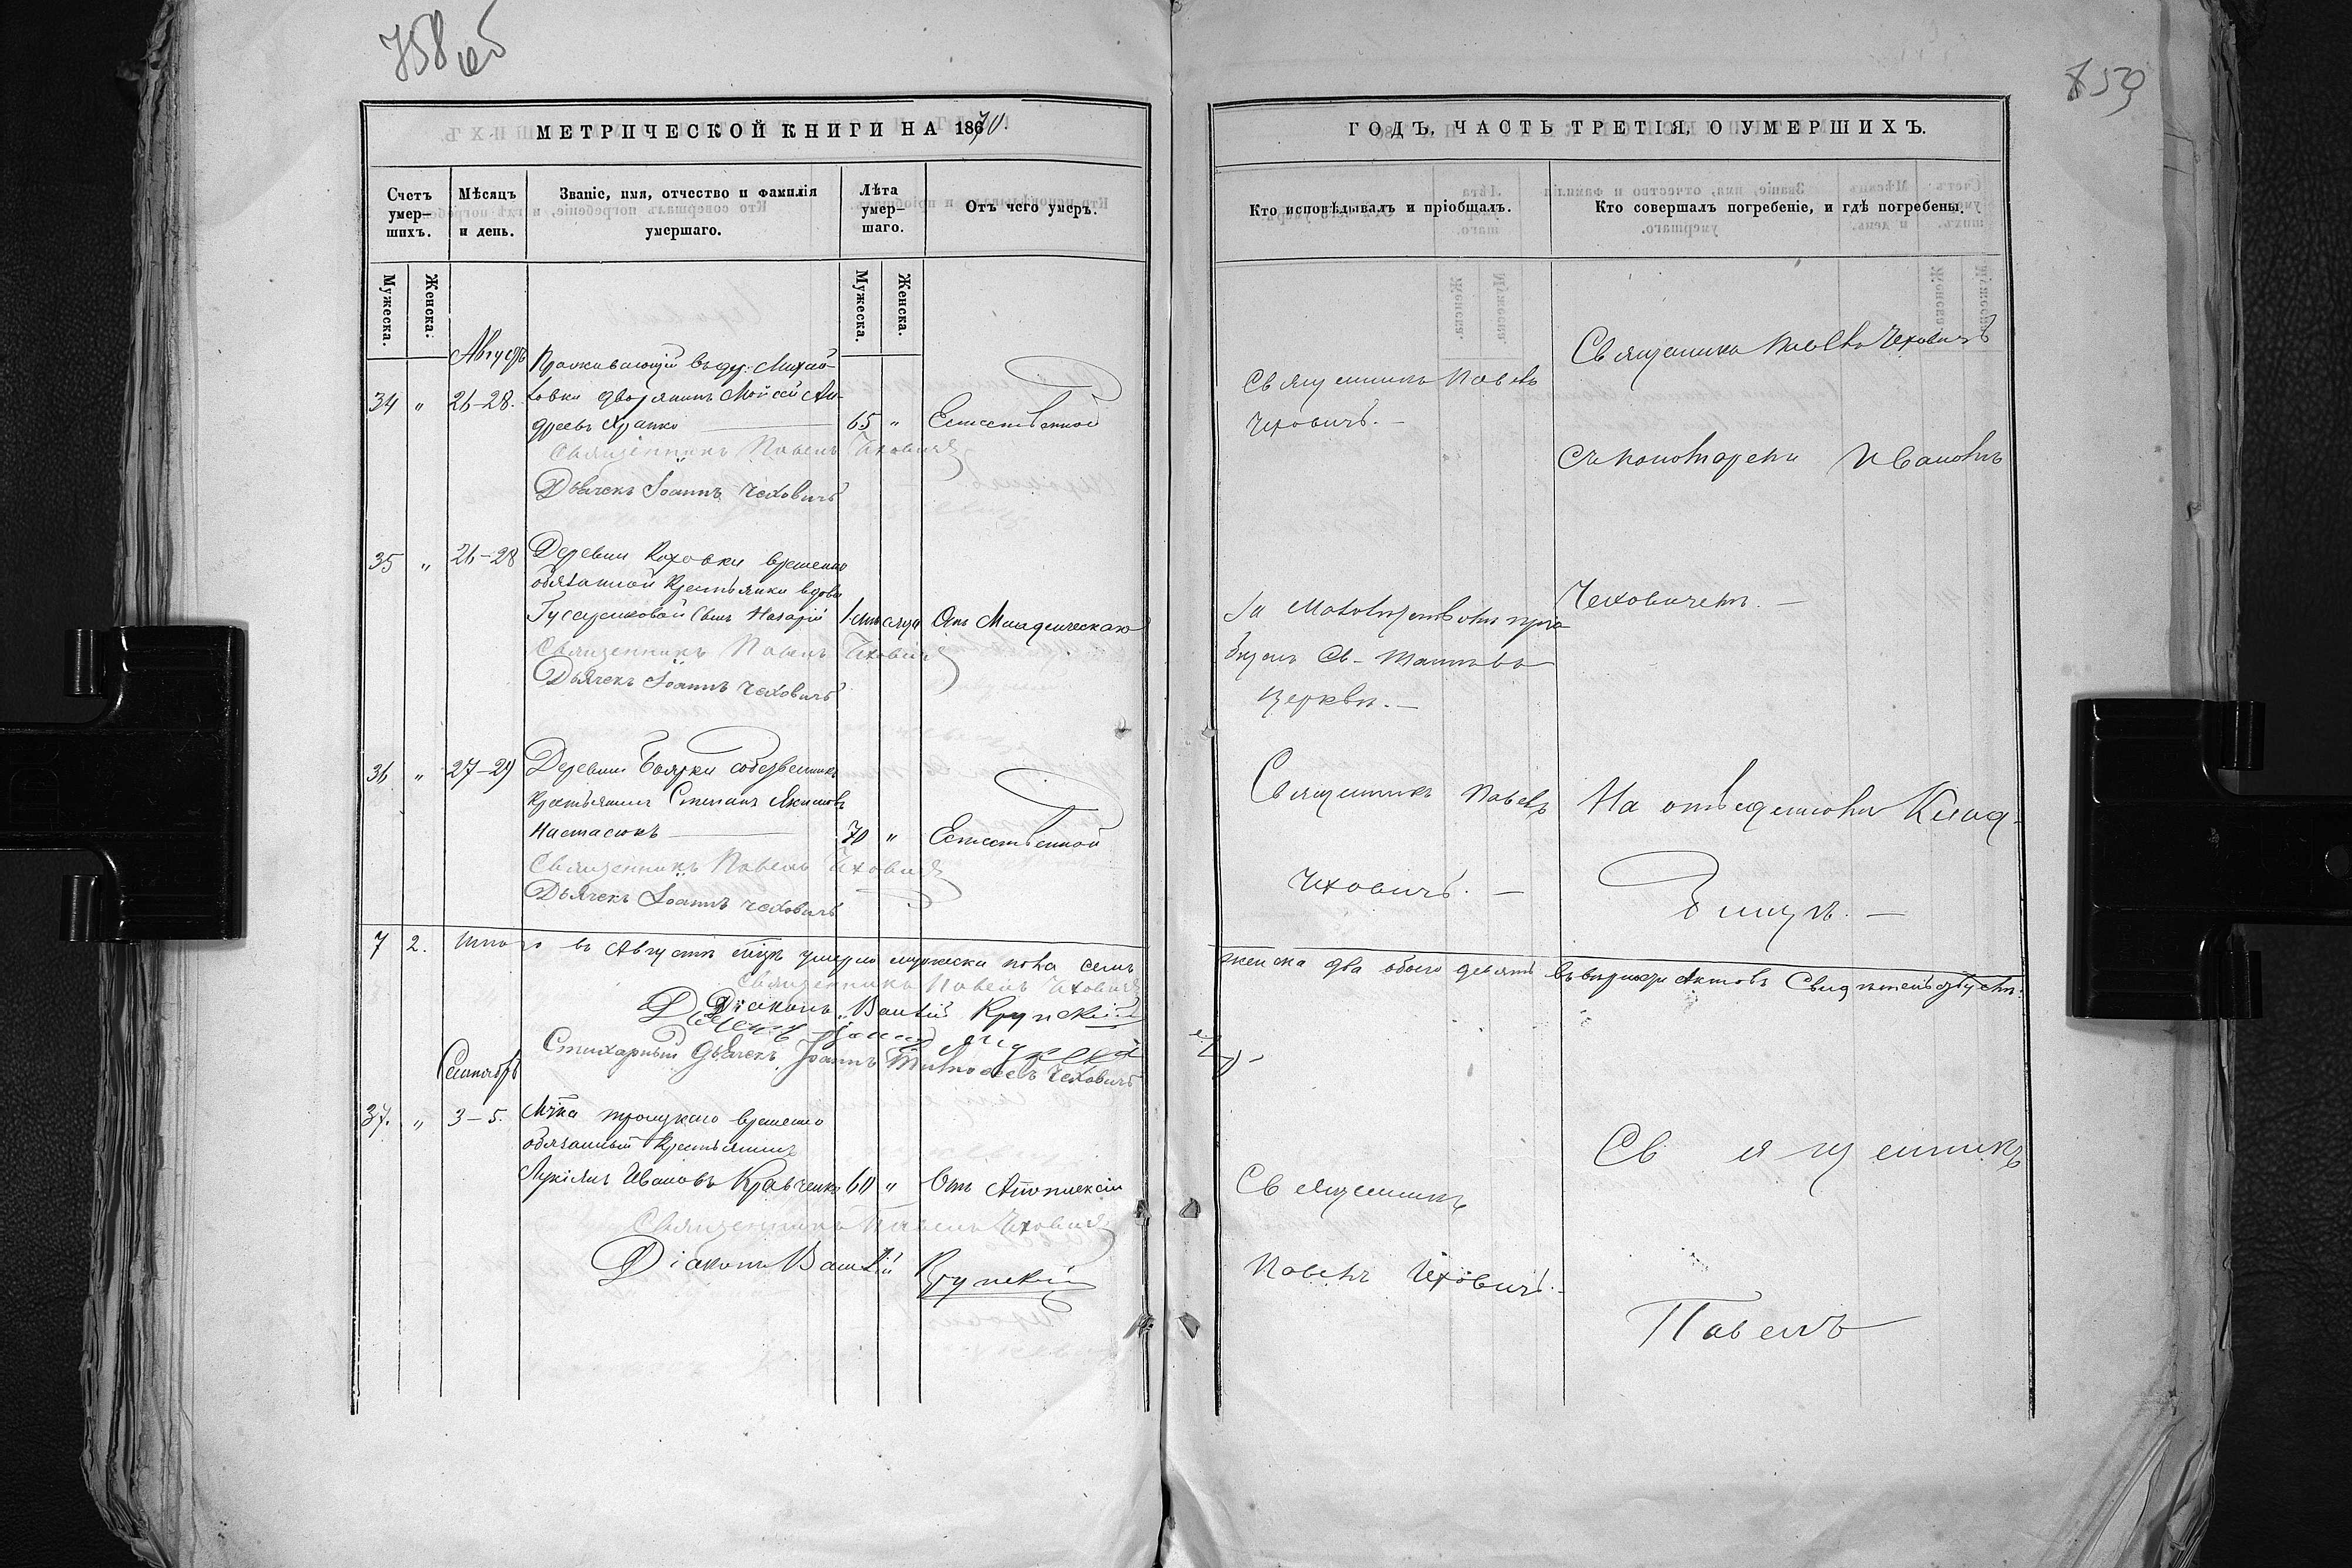 758 об
859
МЕТРИЧЕСКОЙ КНИГИ НА 1870.
Счетъ умер-
шихъ.
Мѣсяцъ
и день.
Званіе, имя, отчество и фамилія
умершаго.
Лѣта
умер-
шаго.
Отъ чего умеръ.
Мужеска.
Женска.
Мужеска.
Женска.
Августъ
34 " 26-28.
Проживающій въ дер. Михай-
ловки дворянинъ Мойсей Ан-
дреевъ Храпко 65 " Естественной
Священникъ Павелъ Чеховичъ
Дьячекъ Іоаннъ Чеховичъ
35 " 26-28
Деревни временно
обязанной крестьянки вдовы
сынъ Назарій Отъ Младенческаго
Священникъ Павелъ Чеховичъ
Дьячекъ Іоаннъ Чеховичъ
36 " 27-29
Деревни Боярки собственникъ
крестьянинъ Степанъ Якимовъ
Настасюкъ 70 " Естественной
Священникъ Павелъ Чеховичъ
Дьячекъ Іоаннъ Чеховичъ
7 2. Итого въ Августѣ м-цѣ умерло мужеска пола семь
Священникъ Павелъ Чеховичъ
Діаконъ Крупскій
Стихарный Дьячекъ Іоаннъ Чеховичъ
Сентябрь
37. " 3-5.
М-ка Троицкаго временно
обязанный крестьянинъ
Лукіянъ Ивановъ Кравченко 60 " Отъ Апоплексіи
Священникъ Павелъ Чеховичъ
Діаконъ Крупскій
ГОДЪ, ЧАСТЬ ТРЕТІЯ, О УМЕРШИХЪ.
Кто исповѣдывалъ и пріобщалъ.
Кто совершалъ погребеніе, и гдѣ погребены.
Священникъ Павелъ
Чеховичъ.
Священникъ Павелъ Чеховичъ
съ пономаремъ Ивановъ
Чеховичемъ.
За малолѣтствомъ прі-
общенъ Св. Таинъ въ
церкви.
Священникъ Павелъ
Чеховичъ.
На отведенномъ Клад-
бищѣ.
женска два обоего девять въ вѣрности Актовъ Свидѣтельству
емъ
Священникъ
Павелъ Чеховичъ.
Священникъ
Павелъ